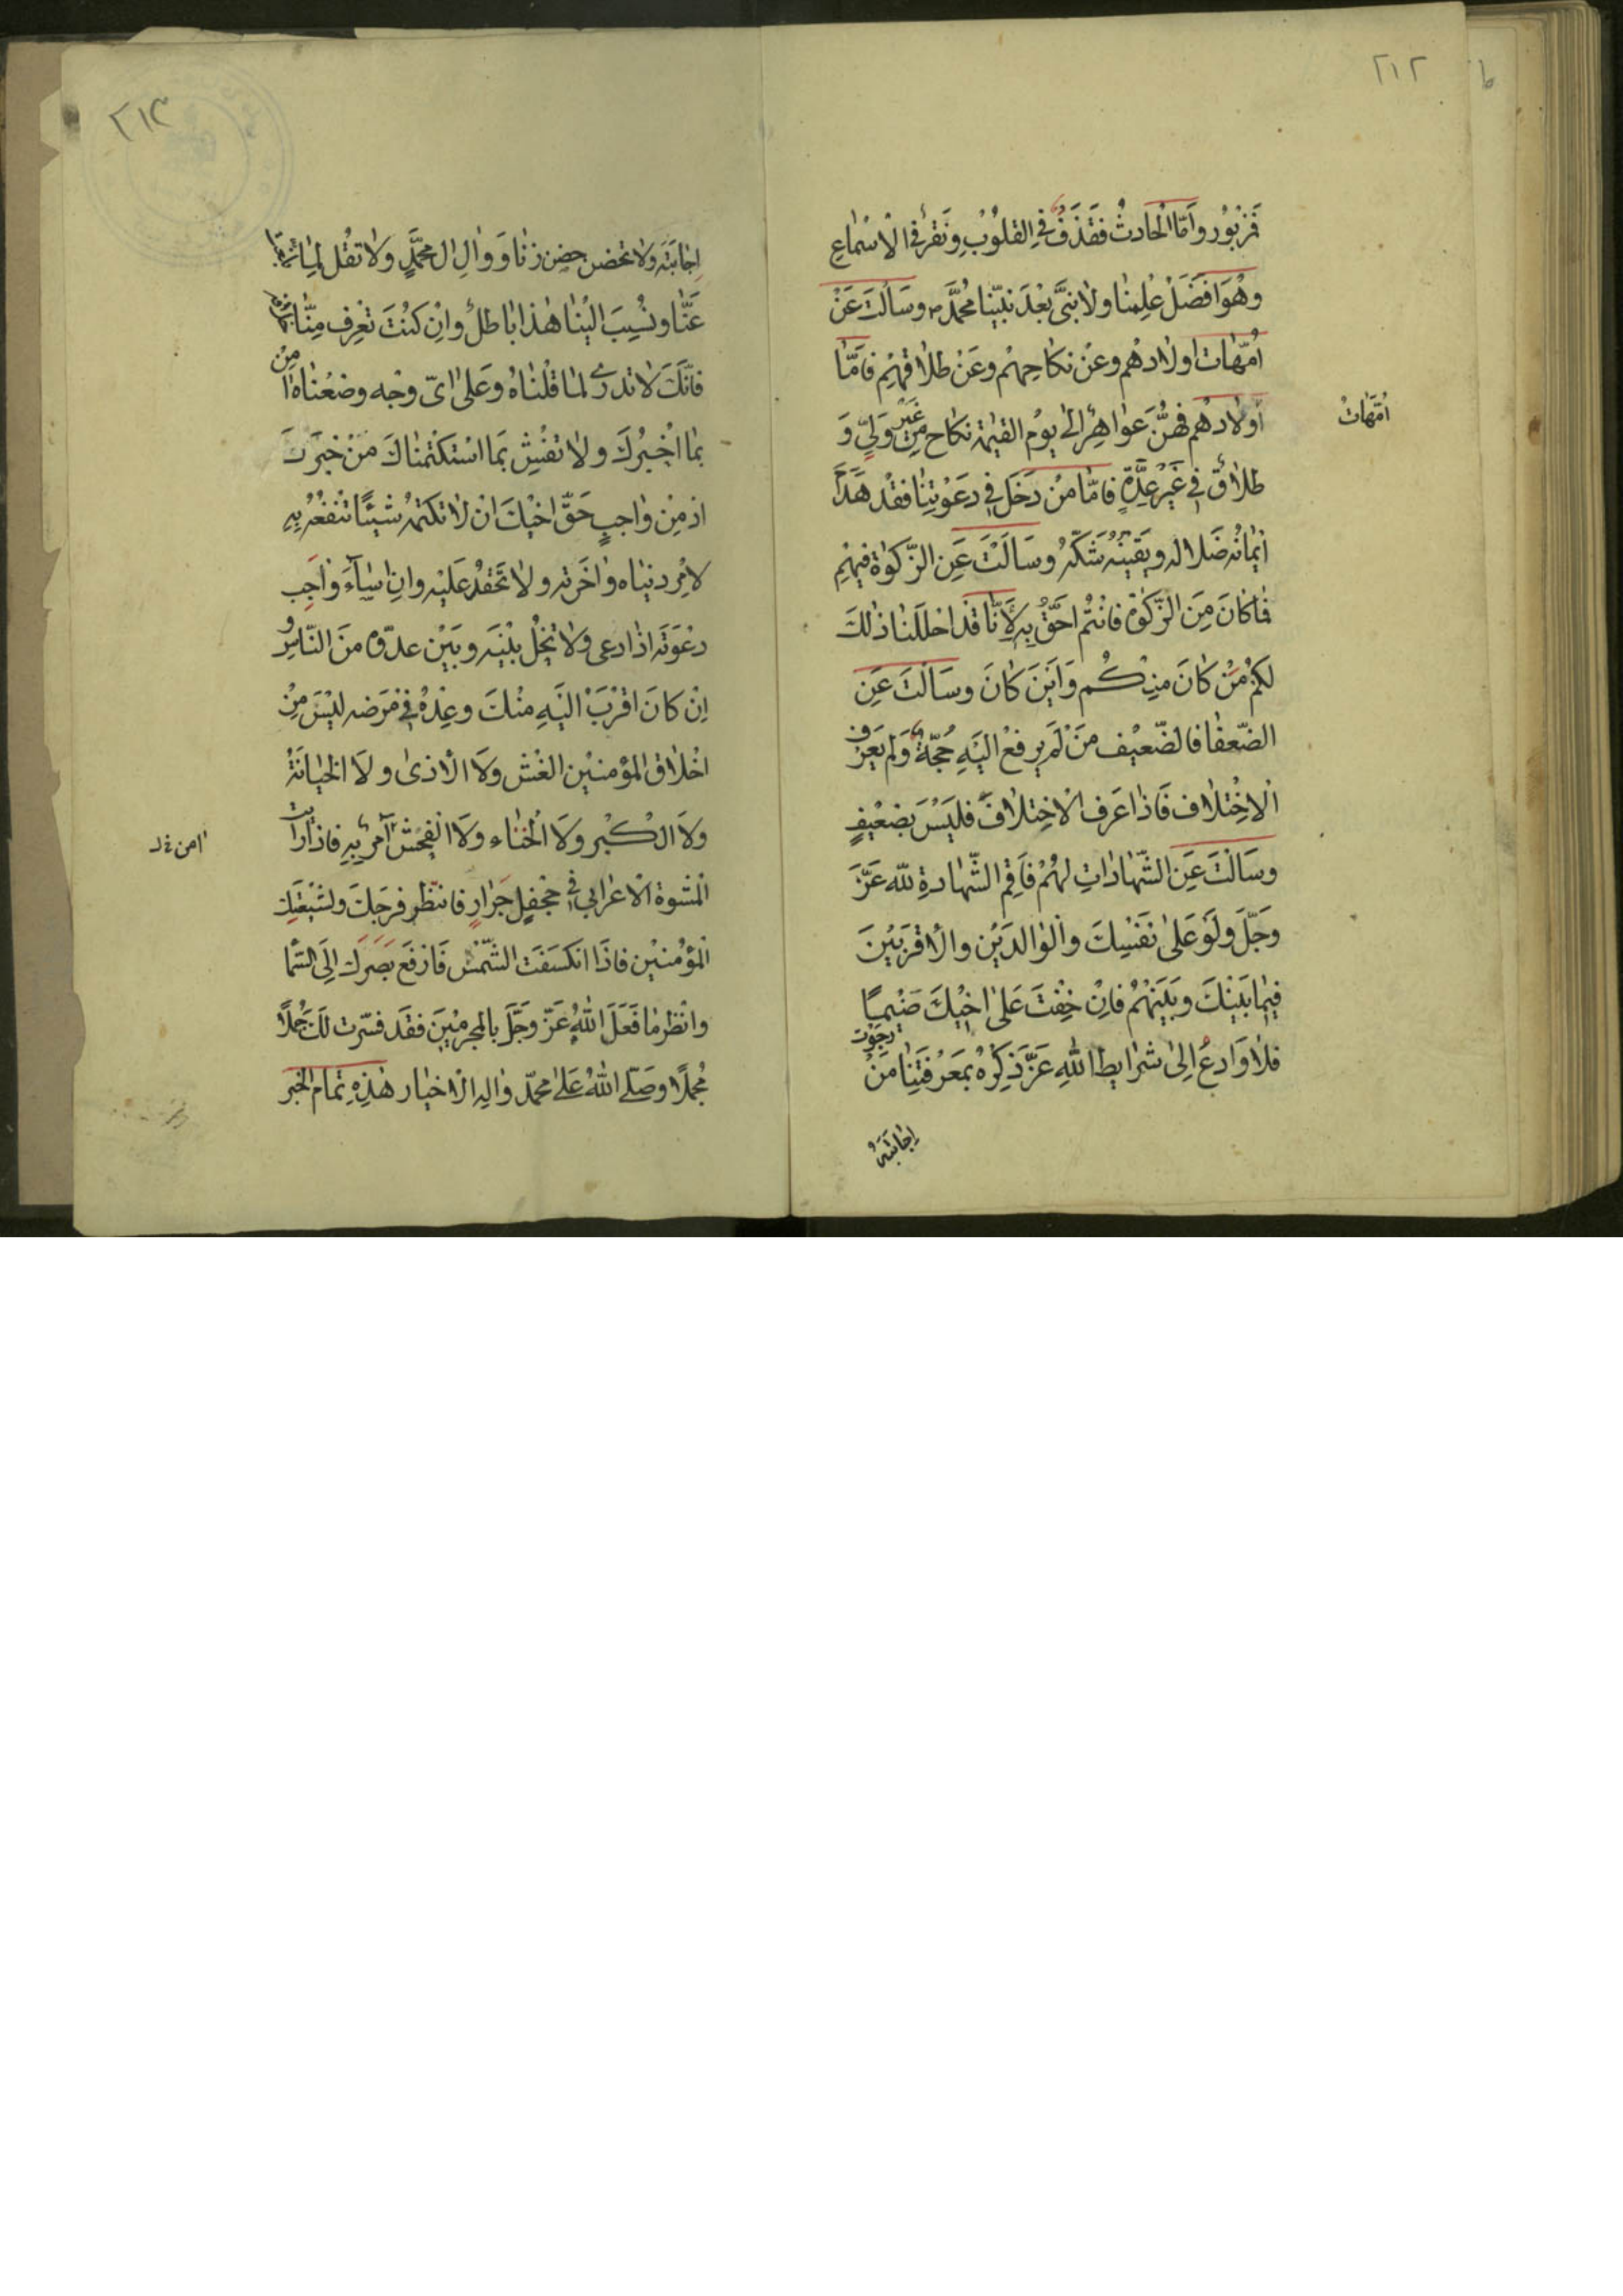 ٢١٢
فمزبور وامّا الحادث فقذف في القلوب ونقر في الاسماع
وهو افضل علمنا ولا نبىّ بعد نبيّنا محمّد م وسالت عن
امّهات اولادهم وعن نكاحهم وعن طلاقهم فامّا
امّهات
اولادهم فهنّ عواهر الى يوم القيمة نكاح من غير ولىّ و
طلاق في غير عدّة فامّا من دخل في دعوتنا فقد هدم
ايمانه ضلاله ويقينه شكّه وسالت عن الزّكوة فيهم
فما كان من الزّكوة فانتم احقّ به لانّا قد احللنا ذلك
لكم من كان منكم واين كان وسالت عن
الضّعفا فالضّعيف من لم يرفع اليه حجّة ولم يعرف
الاختلاف فاذا عرف الاختلاف فليس بضعيف
وسالت عن الشّهادات لهم فاقم الشّهادة للّه عزّ
وجلّ ولو على نفسك والوالدين والاقربين
فيما بينك وبينهم فان خفت على اخيك ضيما
فلا وادع الى شرايط الله عزّ ذكره بمعرفتنا من رجوت
اجابته
٢١٣
اجابته ولا تحضن حصن زنا ووال ال محمّد ولا تقل لما
عنّا ونسب الينا هذا باطل وان كنت تعرف منّا
فانّك لا تدرى لما قلناه وعلى اىّ وجه وضعناه امن
بما اخبرك ولا تفش بما استكتمناك من خبرك
ان من واجب حقّ اخيك ان لا تكتمه شيئا تنفعه به
لامر دنياه واخرته ولا تحقد عليه وان اساء واجب
دعوته اذا دعى ولا تخل بينه وبين عدوّه من النّاس و
ان كان اقرب اليه منك وعده في مرضه ليس من
اخلاق المؤمنين الغش ولا الاذى ولا الخيانة
ولا الكبر ولا الخناء ولا الفحش امر به فاذا رايت
المشوة الاعرابي في جحفل جرار فانتظر فرجك ولشيعتك
المؤمنين فاذا انكسفت الشّمس فارفع بصرك الى السّما
وانظر ما فعل الله عزّ وجلّ بالمجرمين فقد فسّرت لك جملا
مجملا وصلّى الله على محمّد واله الاخيار هذه تمام الخبر